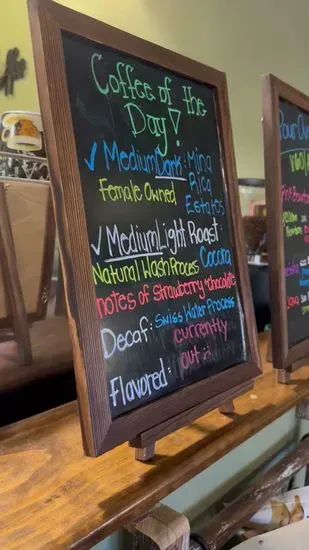 Coffee of the
Day!
✓ Medium Dark: Mina
Female Owned Rica
Estates
✓ Medium Light Roast:
Natural Wash Process Cocora
notes of strawberry + chocolate
Decaf: Swiss Water Process
Flavored: currently
out :(
Pour Ove
V60/
Pink Bourbon